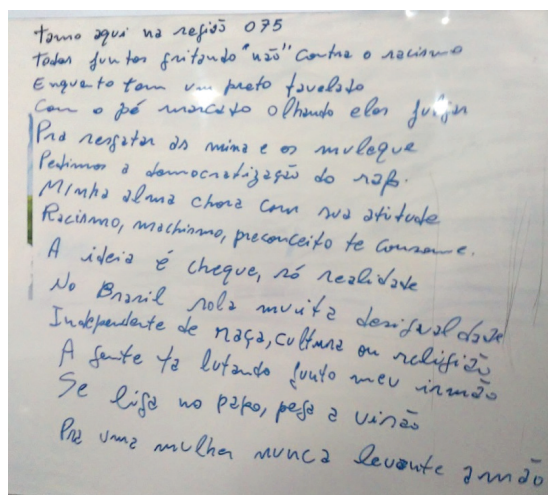 tamo aqui na região 075
Todos juntos gritando "não" contra o racismo
Enquanto tem um preto favelado
Com o pé marcado olhando eles julgar
Pra resgatar as mina e os muleque
Pedimos a democratização do rap.
Minha alma chora com sua atitude
Racismo, machismo, preconceito te consome.
A ideia é cheque, só realidade
No Brasil rola muita desigualdade
Independente de raça, cultura ou religião
A gente ta lutando junto meu irmão
Se liga no papo, pega a visão
Pra uma mulher nunca levante a mão